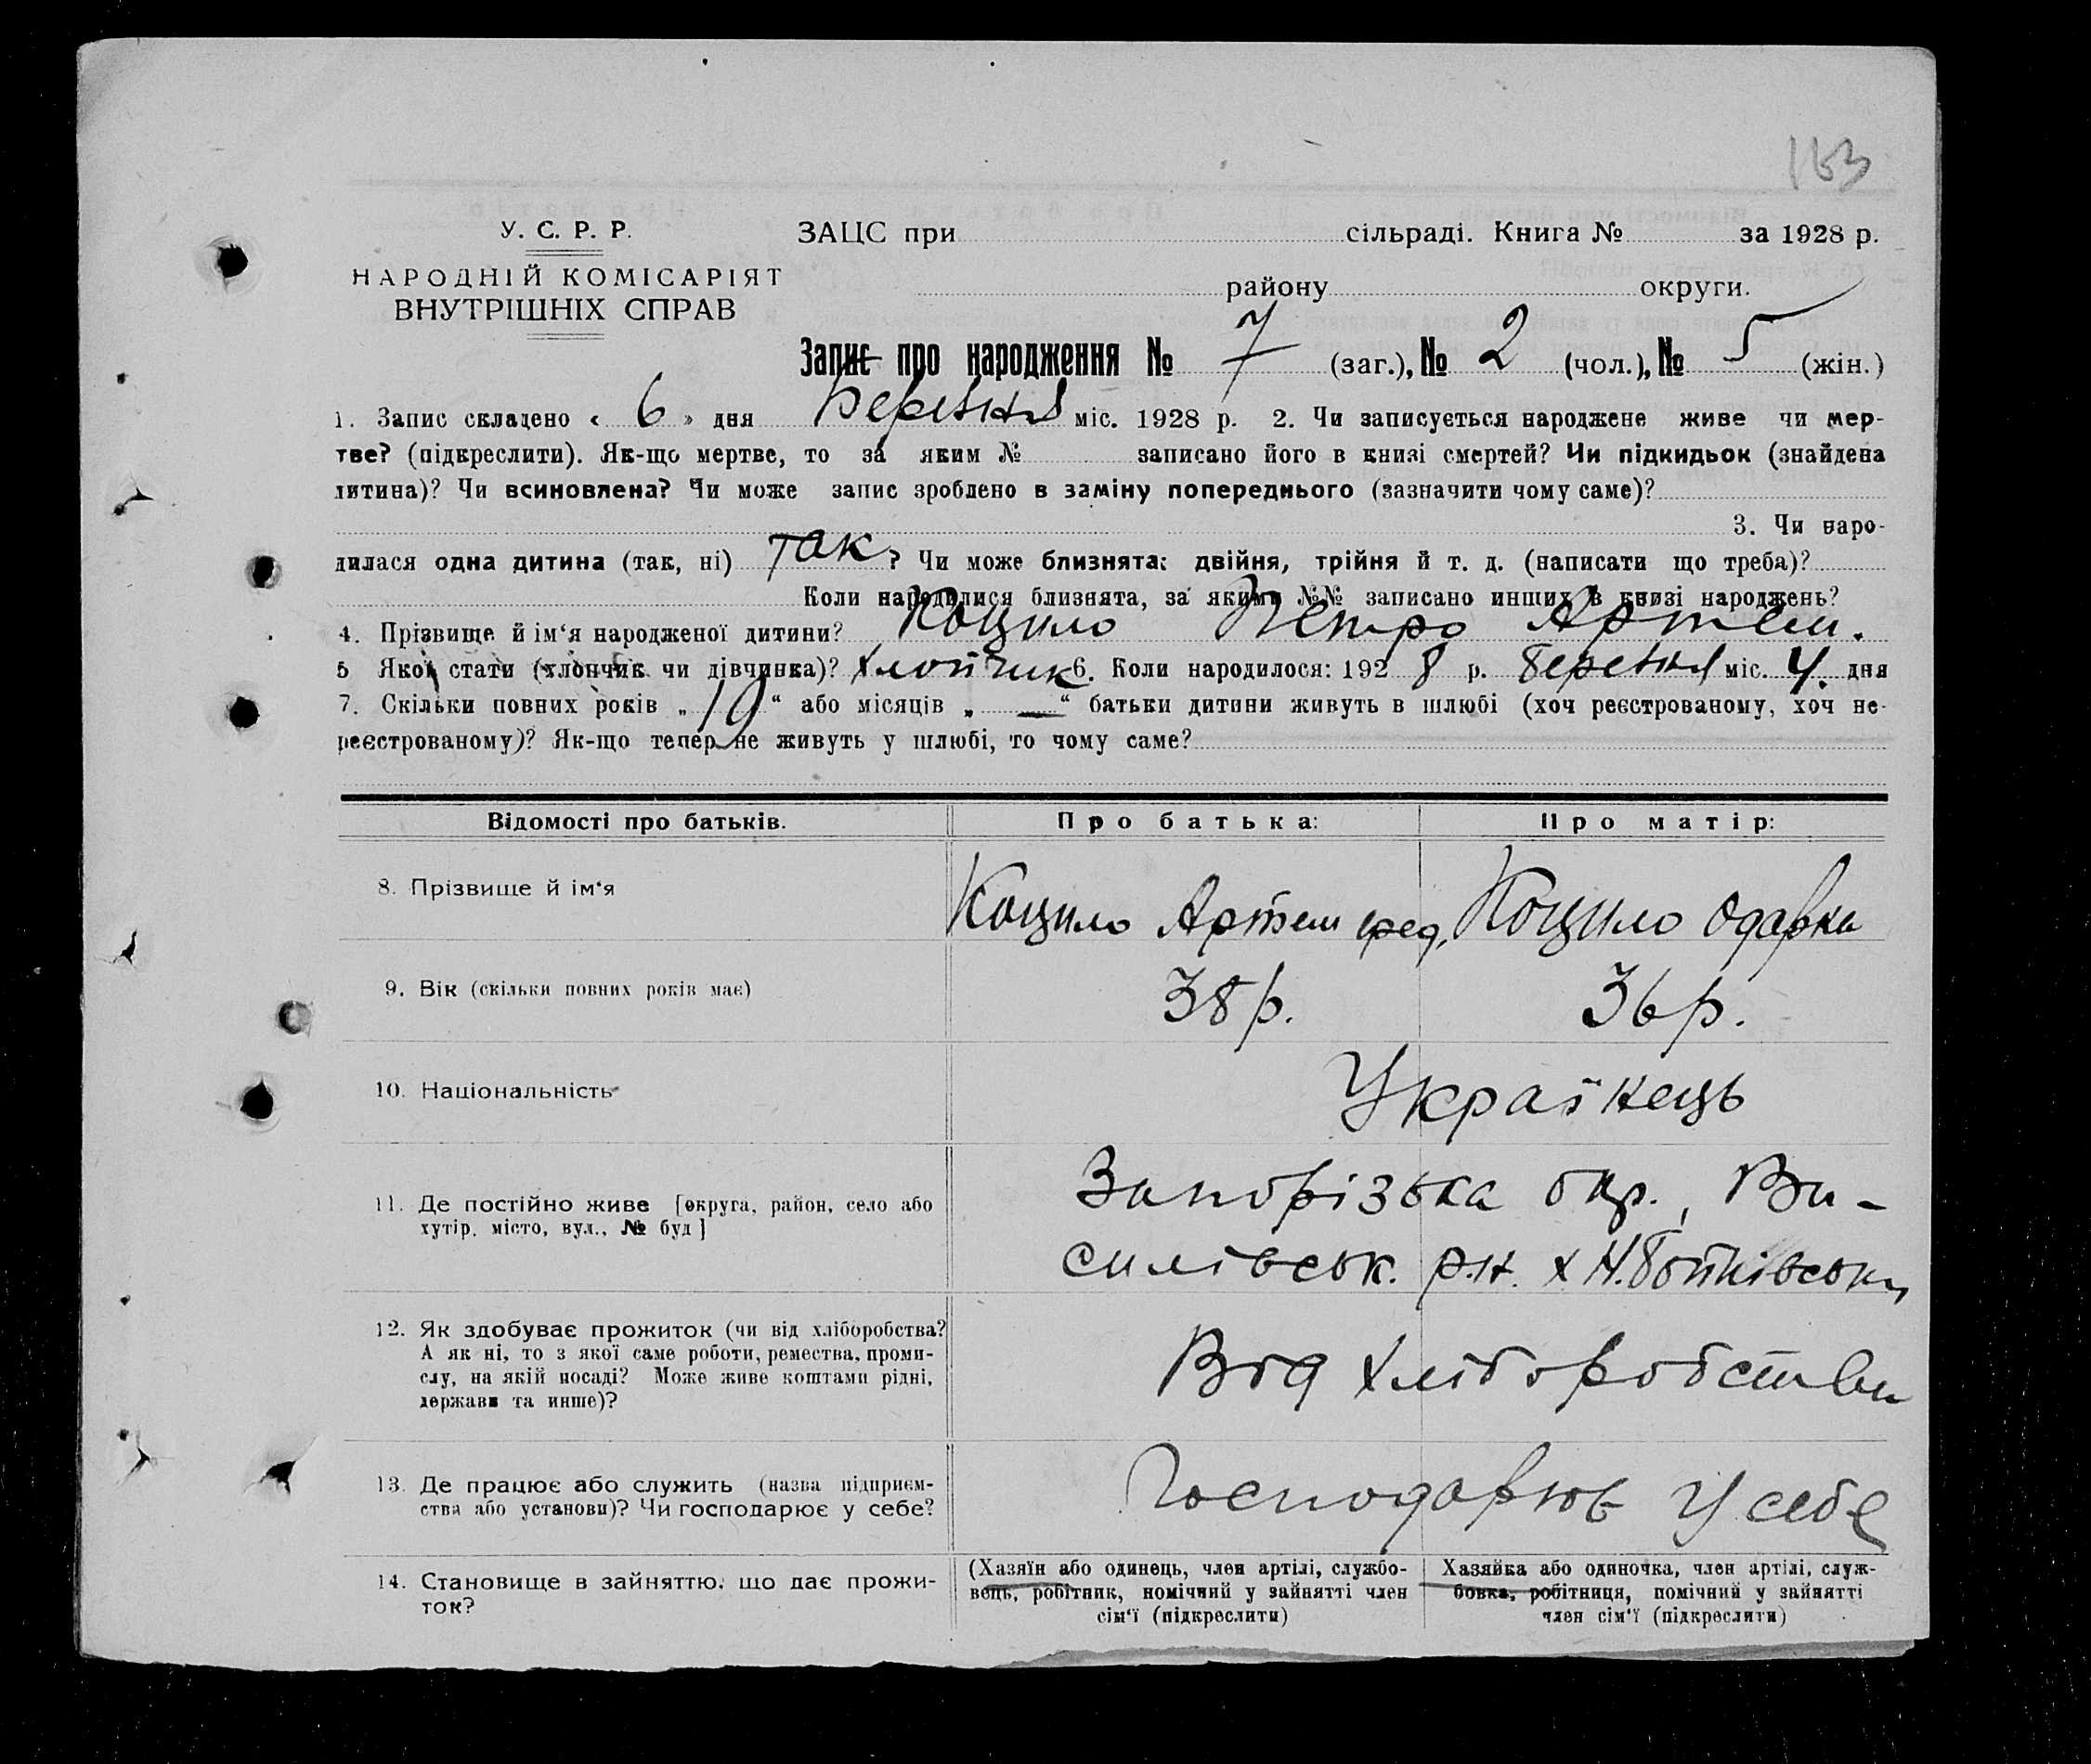 163
У. С. Р. Р.
НАРОДНІЙ КОМІСАРІЯТ
ВНУТРІШНІХ СПРАВ
ЗАЦС при сільраді. Книга № за 1928 р.
району округи.
Запис про народження № 7 (заг.), № 2 (чол.), № 5 (жін.)
1. Запис складено « 6 » дня Березня міс. 1928 р. 2. Чи записується народжене живе чи мер-
тве? (підкреслити). Як-що мертве, то за яким № записано його в книзі смертей? Чи підкидьок (знайдена
дитина)? Чи всиновлена? Чи може запис зроблено в заміну попереднього (зазначити чому саме)?
3. Чи наро-
дилася одна дитина (так, ні) так? Чи може близнята: двійня, трійня й т. д. (написати що треба)?
Коли народилися близнята, за якими №№ записано инших в книзі народжень?
4. Прізвище й ім‘я народженої дитини? Коцило Петро Артем.
5 Якої стати (хлопчик чи дівчинка)? Хлопчик 6. Коли народилося: 1928 р. березня міс. 4. дня
7. Скільки повних років „ 19 “ або місяців „ — “ батьки дитини живуть в шлюбі (хоч реєстрованому, хоч не-
реєстрованому)? Як-що тепер не живуть у шлюбі, то чому саме?
Відомості про батьків. Про батька: Про матір:
8. Прізвище й ім‘я Коцило Артем Коцило Одарка
9. Вік (скільки повних років має) 38 р. 36 р.
10. Національність Українець
11. Де постійно живе [округа, район, село або
хутір, місто, вул., № буд ]
Запорізька окр., Ва-
силівськ. р.н. х
12. Як здобуває прожиток (чи від хліборобства?
А як ні, то з якої саме роботи, ремества, проми-
слу, на якій посаді? Може живе коштами рідні,
держави та инше)?
Від хліборобства
13. Де працює або служить (назва підприєм-
ства або установи)? Чи господарює у себе?
Господарює у себе
14. Становище в зайняттю, що дає прожи-
ток?
(Хазяїн або одинець, член артілі, службо-
вець, робітник, помічний у зайнятті член
сім‘ї (підкреслити)
Хазяйка або одиночка, член артілі, служ-
бовка, робітниця, помічний у зайнятті
член сім‘ї (підкреслити)